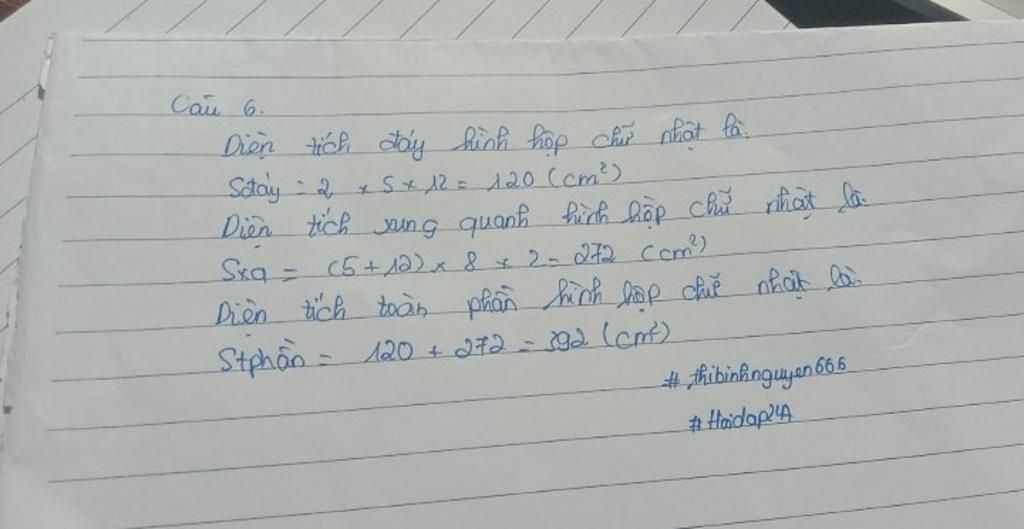 Câu 6.
Diện tích đáy hình hộp chữ nhật là.
Sđáy = 2 × 5 × 12 = 120 (cm²)
Diện tích xung quanh hình hộp chữ nhật là.
Sxq = (5 + 12) × 8 × 2 = 272 (cm²)
Diện tích toàn phần hình hộp chữ nhật là.
Stphần = 120 + 272 = 392 (cm²)
# thibinhnguyen666
# Hoidap24A